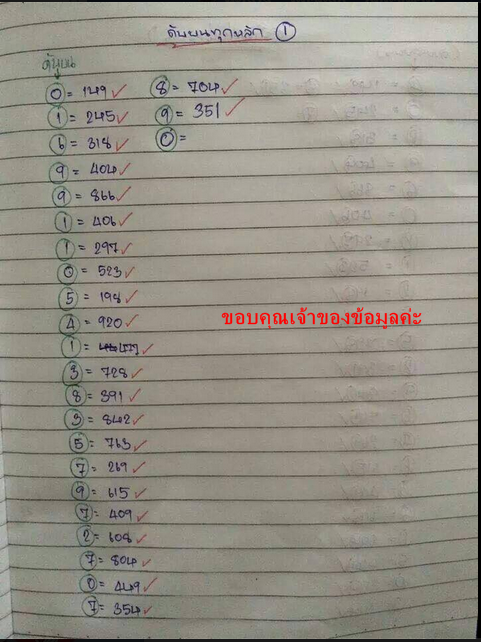 ดับบนทุกหลัก ①
ดับบน
0 = 149 ✓
1 = 245 ✓
6 = 318 ✓
9 = 404 ✓
9 = 866 ✓
1 = 406 ✓
1 = 297 ✓
0 = 523 ✓
5 = 198 ✓
4 = 920 ✓
1 = ✓
3 = 728 ✓
8 = 391 ✓
3 = 842 ✓
5 = 763 ✓
7 = 269 ✓
9 = 615 ✓
7 = 409 ✓
2 = 608 ✓
7 = 804 ✓
0 = 449 ✓
7 = 354 ✓
8 = 704 ✓
9 = 351 ✓
0 =
ขอบคุณเจ้าของข้อมูลค่ะ